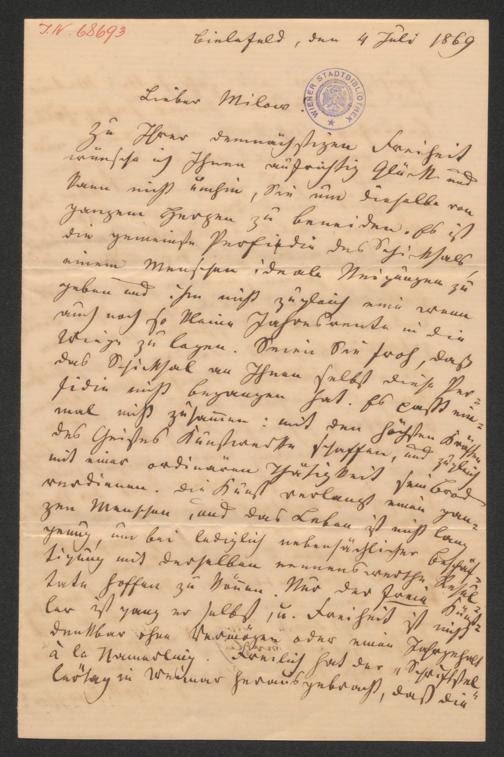 I.N. 68693
Bielefeld, den 4 Juli 1869
WIENER STADTBIBLIOTHEK
Lieber Milow!
Zu Ihrer demnächstigen Freiheit
wünsche ich Ihnen aufrichtig Glück und
kann nicht umhin, Sie um dieselbe von
ganzem Herzen zu beneiden. Es ist
die gemeinste Perfidie des Schicksals,
einem Menschen ideale Neigungen zu
geben und ihm nicht zugleich eine wenn
auch noch so kleine Jahresrente in die
Wiege zu legen. Seien Sie froh, daß
das Schicksal an Ihnen selbst diese Per-
fidie nicht begangen hat. Es paßt ein-
mal nicht zusammen: mit den höchsten Kräften
des Geistes Kunstwerke schaffen, und zugleich
mit einer ordinären Thätigkeit sein Brod
verdienen. Die Kunst verlangt einen gan-
zen Menschen, und das Leben ist nicht lang
genug, um bei lediglich nebensächlicher Beschäf-
tigung mit derselben nennenswerthe Resul-
tate hoffen zu können. Nur der freie Künst-
ler ist ganz er selbst, u. Freiheit ist nicht
denkbar ohne Vermögen oder einen Jahrgehalt
à la Hamerling. Freilich hat der "Schriftstel-
lertag in Weimar herausgebracht, daß die